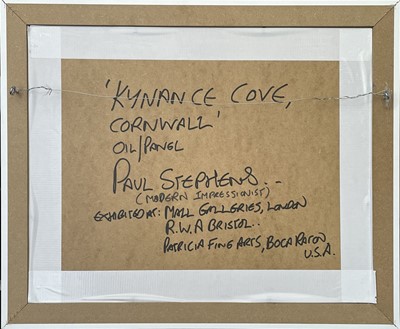 'KYNANCE COVE,
CORNWALL'
OIL/PANEL
PAUL STEPHENS..
(MODERN IMPRESSIONIST)
EXHIBITED AT: MALL GALLERIES, LONDON
R.W.A BRISTOL..
PATRICIA FINE ARTS, BOCA RATON
U.S.A.